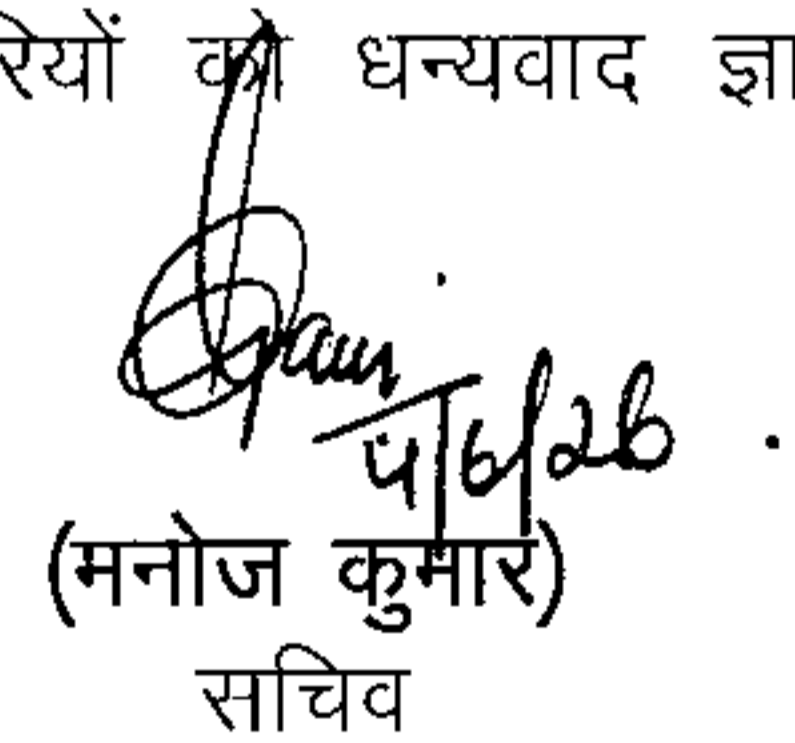 रियों को धन्यवाद ज्ञा
4/6/26
(मनोज कुमार)
सचिव